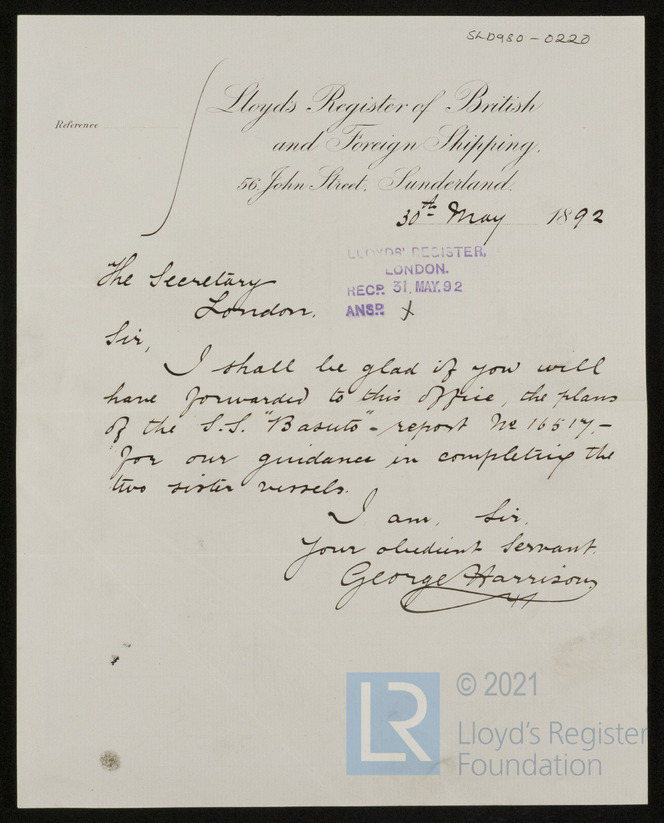 SLD980-0220
Lloyd's Register of British
and Foreign Shipping.
Reference
56, John Street, Sunderland.
30th May 1892
LLOYDS' REGISTER,
LONDON.
RECD. 31. MAY. 92
ANSD. X
The Secretary
London.
Sir,
I shall be glad if you will
have forwarded to this office, the plans
of the S.S. "Basuto" - report No 16517 -
for our guidance in completing the
two sister vessels.
I am, Sir,
Your obedient Servant.
George Harrison
LR
© 2021
Lloyd's Register
Foundation